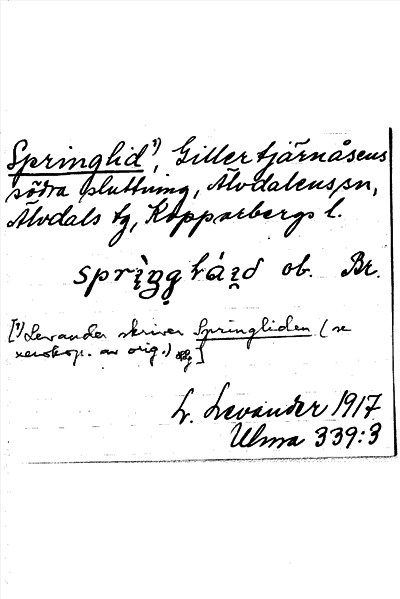 Springlid¹), Gillertjärnåsens
södra sluttning, Älvdalens sn,
Älvdals tg, Kopparbergs l.
ob. Br.
[¹) Levander skriver Springliden (se
xeroskop. av orig.)]
L. Levander 1917
Ulma 339:3